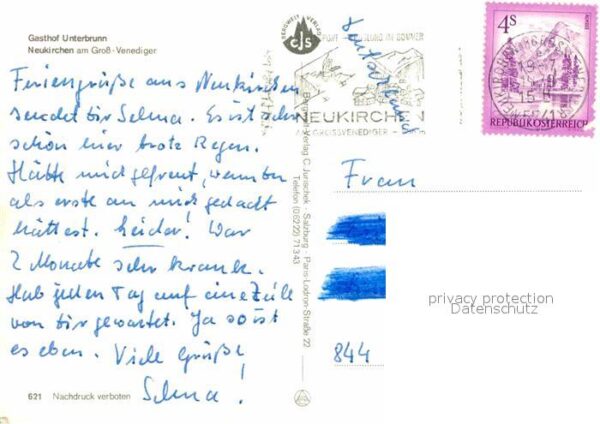 Gasthof Unterbrunn
Neukirchen am Groß-Venediger
Feriengrüße aus Neukirchen
sendet dir Selma. Es ist sehr
schön hier trotz Regen.
Hätte mich gefreut, wenn du
als erste an mich gedacht
hättest. Leider! War
2 Monate sehr krank.
Hab jeden Tag auf eine Zeile
von dir gewartet. Ja so ist
es eben. Viele Grüße!
Selma!
621 Nachdruck verboten
BERGWELT VERLAG
CJS
Verlag C. Jurischek · Salzburg · Paris-Lodron-Straße 22
Telefon (06222) 71343
Deutschland
NEUKIRCHEN
AM GROSSVENEDIGER
4S
REPUBLIK ÖSTERREICH
Frau
844
privacy protection
Datenschutz